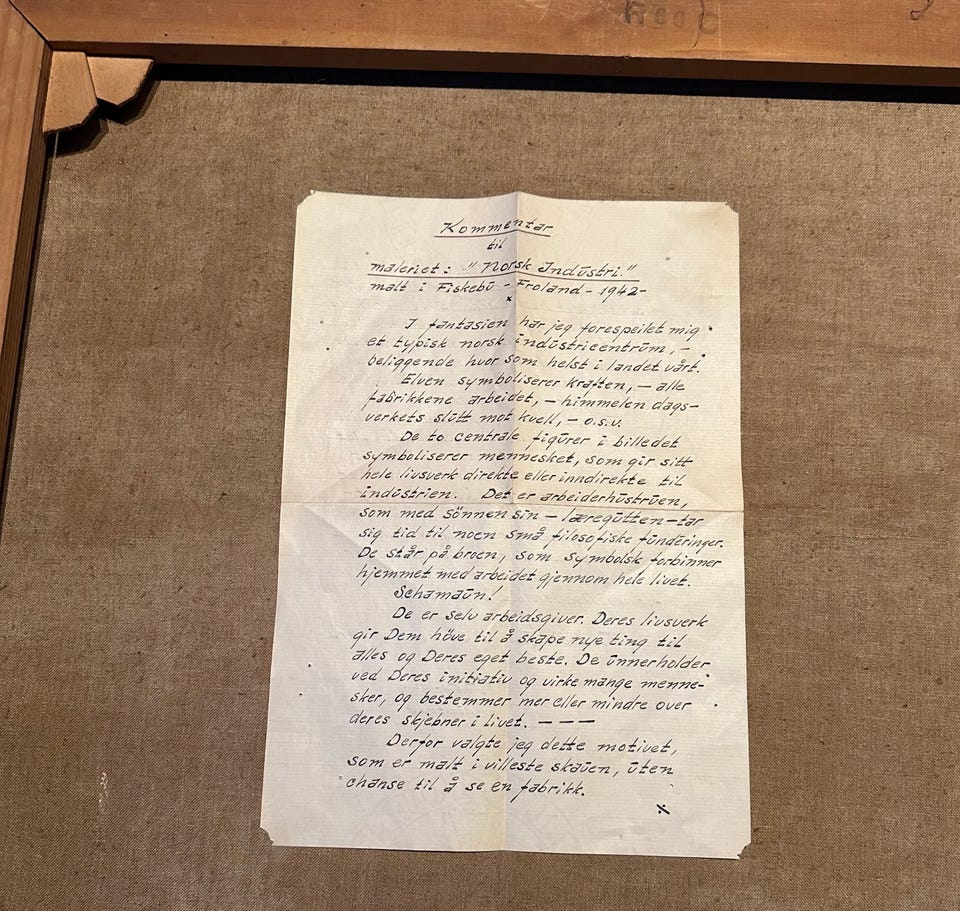 Kommentar
til
maleriet: "Norsk Indūstri."
malt i Fiskebū - Froland - 1942-
×
I fantasien har jeg forespeilet mig
et typisk norsk indūstricentrūm, -
beliggende hvor som helst i landet vårt.
Elven symboliserer kraften, - alle
fabrikkene arbeidet, - himmelen dags-
verkets slūtt mot kvell, - o.s.v.
De to centrale figūrer i billedet
symboliserer mennesket, som gir sitt
hele livsverk direkte eller inndirekte til
indūstrien. Det er arbeiderhūstrūen,
som med sönnen sin - læregūtten - tar
sig tid til noen små filosofiske fūnderinger.
De står på broen, som symbolsk forbinner
hjemmet med arbeidet gjennom hele livet.
Schamaūn!
De er selv arbeidsgiver. Deres livsverk
gir Dem höve til å skape nye ting til
alles og Deres eget beste. De ūnnerholder
ved Deres initiativ og virke mange menne-
sker, og bestemmer mer eller mindre over
deres skjebner i livet. - - -
Derfor valgte jeg dette motivet,
som er malt i villeste skaūen, ūten
chanse til å se en fabrikk.